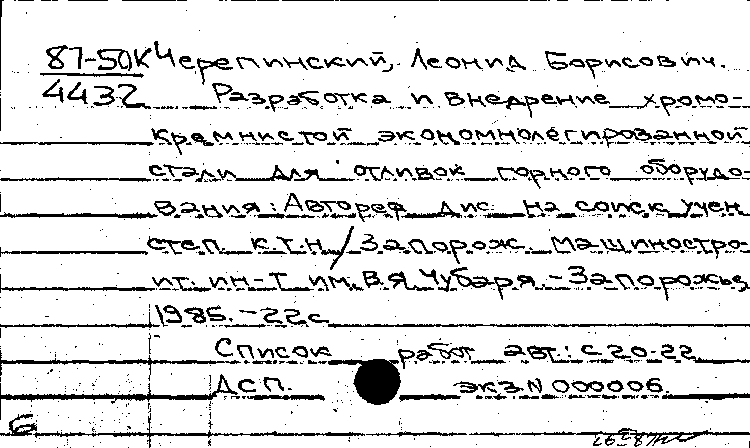 87-50К Черепинский, Леонид Борисович.
4432 Разработка и внедрение хромо-
кремнистой экономнолегированной
стали для отливок горного оборудо-
вания: Автореф дис. на соиск учен
степ. к.т.н / Запорож. машинострo-
ит. ин-т им. В.Я. Чубаря. - Запорожье,
1985. - 22с
Список работ авт.: с 20-22
ДСП. экз N 000006.
Б